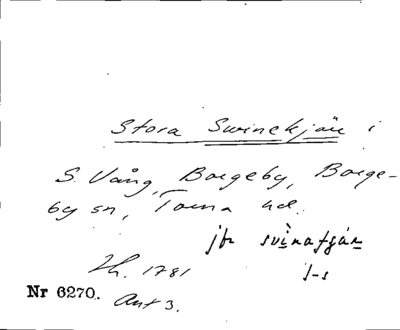 Stora Swinekjär i
S. Vång, Borgeby, Borge-
by sn, Torna hd.
jfr svinatjár
Lh. 1781
1-s
Nr 6270. Akt 3.